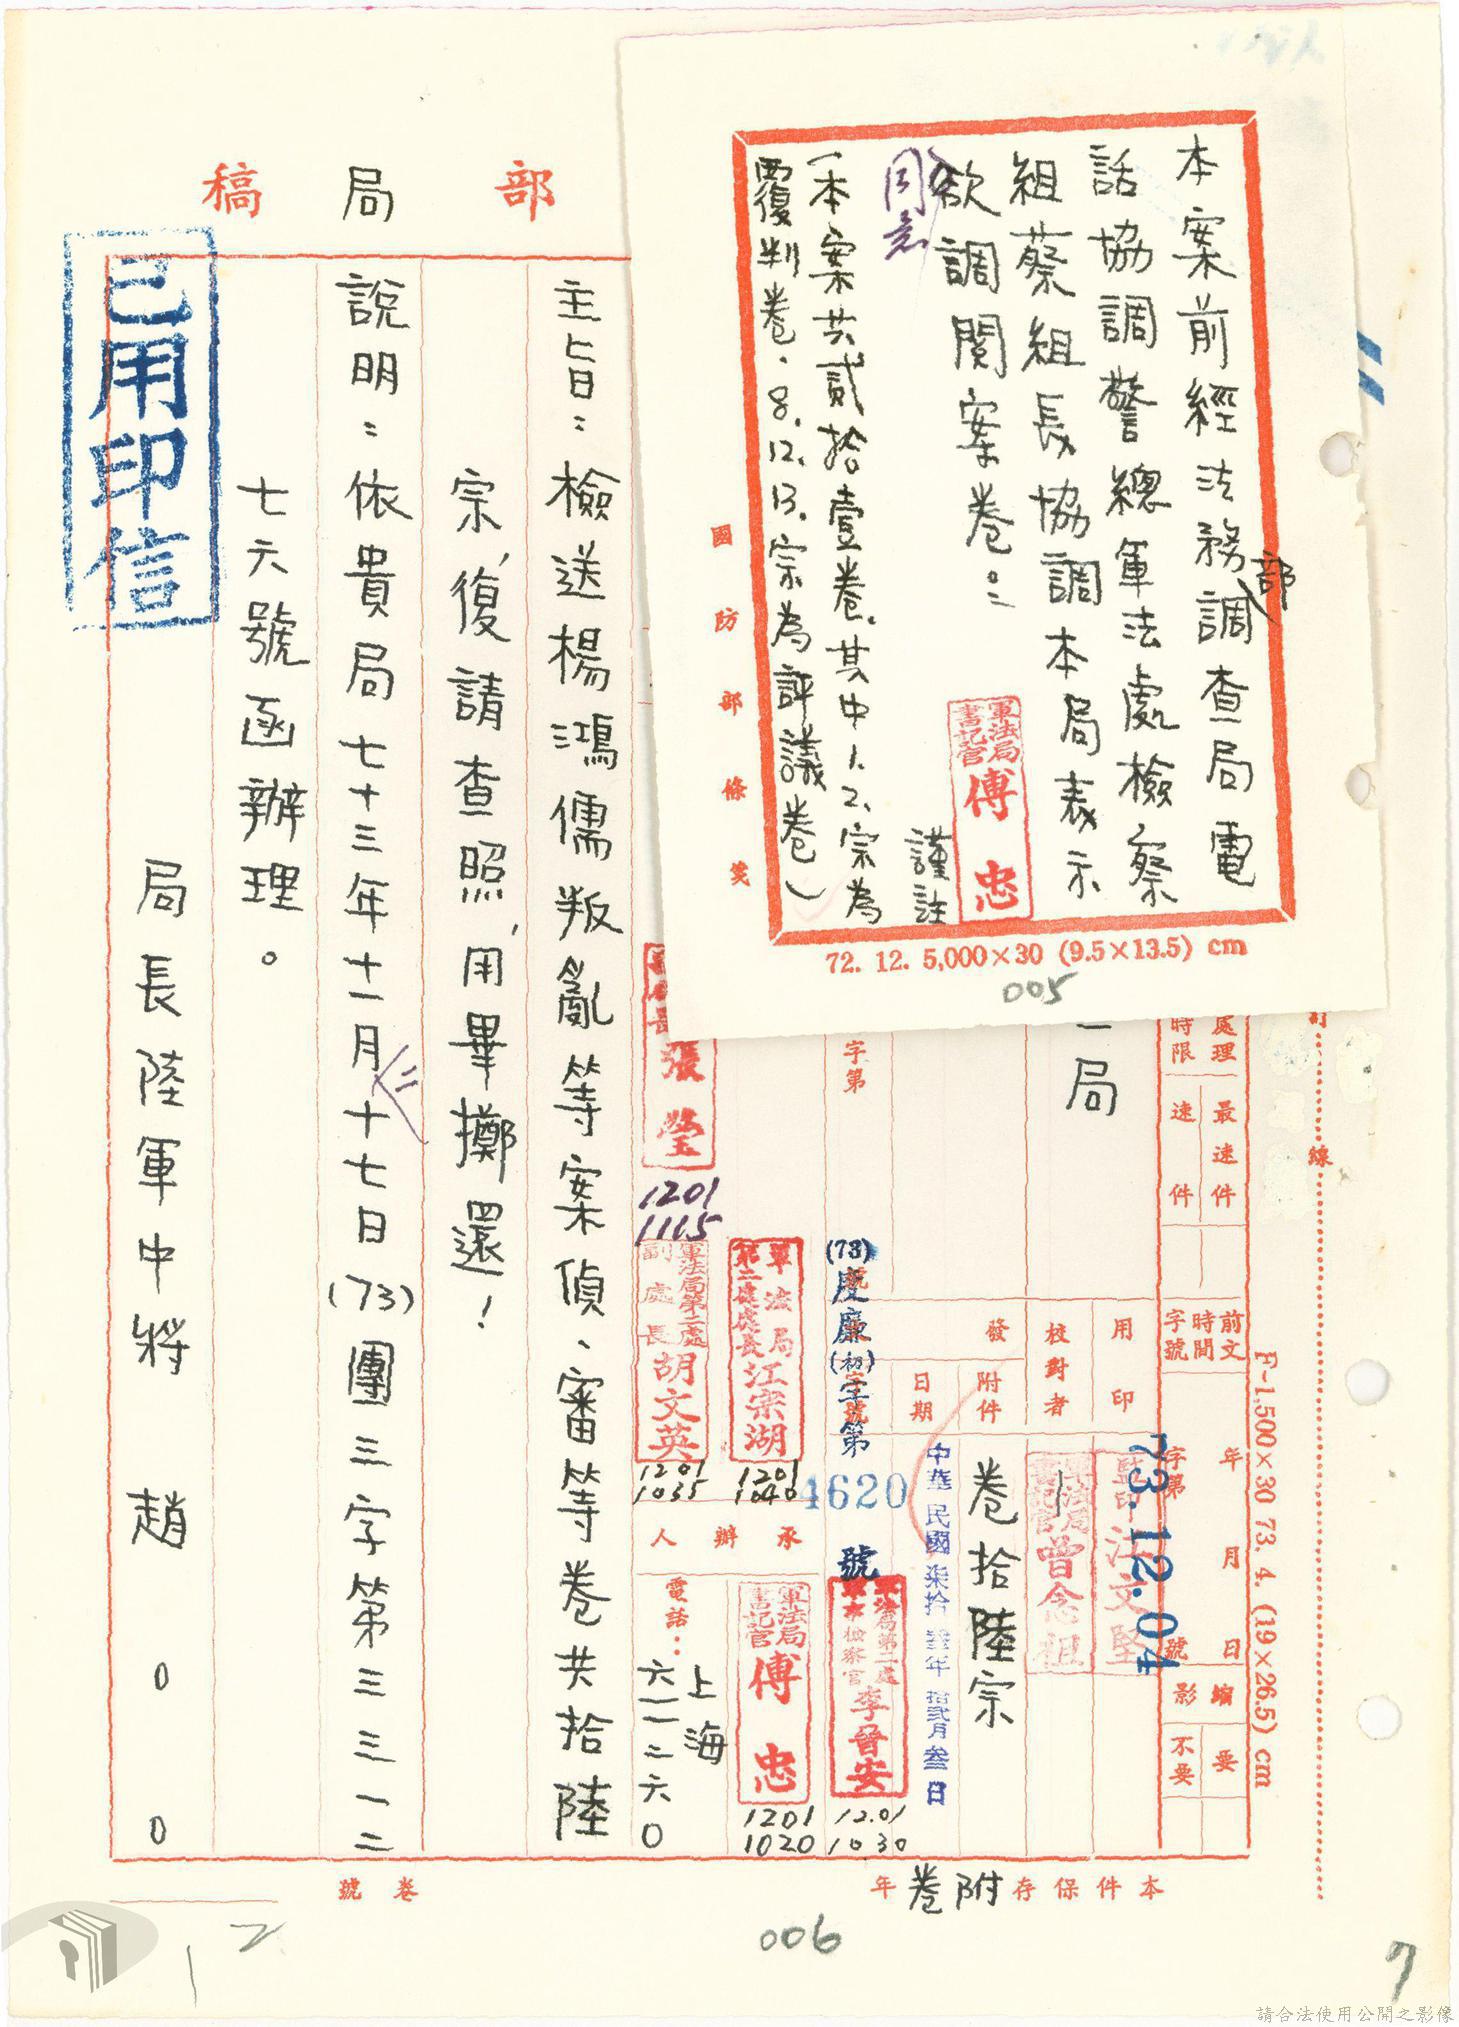 部局稿
已用印信
本案前經法務部調查局電
話協調警總軍法處檢察
組蔡組長協調本局表示
欲調閱案卷。
同意
軍法局
書記官
傅忠
謹註
(本案共貳拾壹卷.其中1.2.宗為
覆判卷.8.12.13.宗為評議卷)
國防部條箋
72. 12. 5,000×30 (9.5×13.5) cm
005
訂
線
處理時限
最速件
速件
前文時間字號
年月日
字第
號
縮影
要
不要
F-1,500×30 73. 4. (19×26.5) cm
局
用印
監印 汪文堅
73.12.04
校對者
軍法局
書記官
曾念祖
發
附件
卷拾陸宗
日期
中華民國柒拾叁年拾貳月叁日
字第
(73)慶廉(初)字第
4620
號
軍法局第二處
軍事檢察官
李晉安
12.01
1030
軍法局
第二處處長
江宗湖
1201
1040
承辦人
軍法局
書記官
傅忠
1201
1020
張瑩
1201
1115
軍法局第二處
副處長
胡文英
1201
1035
電話:
上海
六一一二六０
主旨:檢送楊鴻儒叛亂等案偵、審等卷共拾陸
宗,復請查照,用畢擲還!
說明:依貴局七十三年十一月二十七日(73)團三字第三三一二
七六號函辦理。
局長陸軍中將趙００
本件保存附卷年
卷號
006
12
7
請合法使用公開之影像